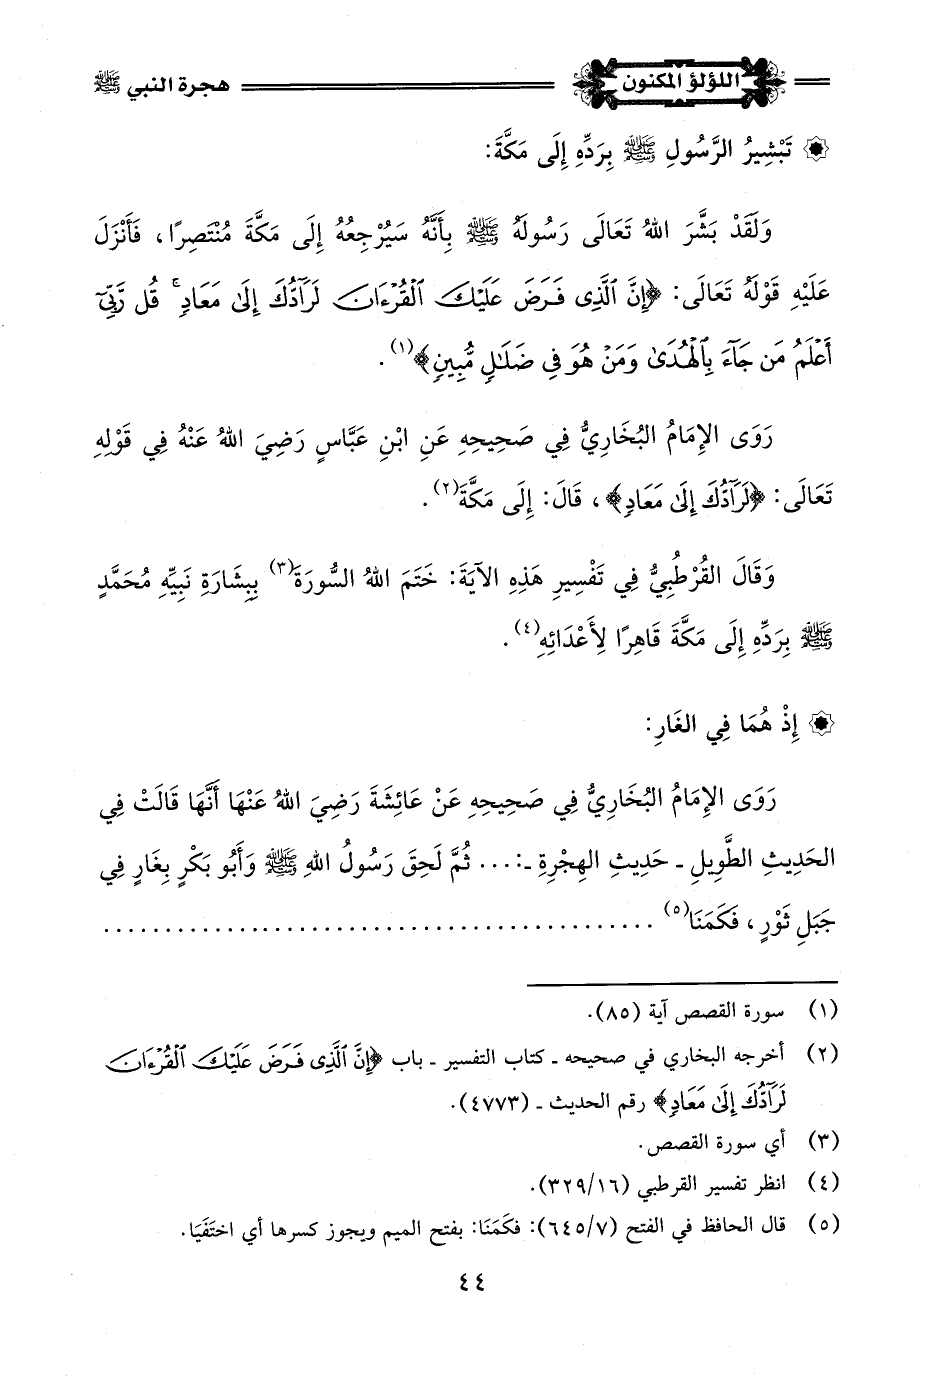 اللؤلؤ المكنون هجرة النبي ﷺ
تَبْشِيرُ الرَّسُولِ ﷺ بِرَدِّهِ إِلَى مَكَّةَ:
وَلَقَدْ بَشَّرَ اللهُ تَعَالَى رَسُولَهُ ﷺ بِأَنَّهُ سَيُرْجِعُهُ إِلَى مَكَّةَ مُنْتَصِرًا، فَأَنْزَلَ
عَلَيْهِ قَوْلَهُ تَعَالَى: ﴿إِنَّ ٱلَّذِى فَرَضَ عَلَيْكَ ٱلْقُرْءَانَ لَرَآدُّكَ إِلَىٰ مَعَادٍ ۚ قُل رَّبِّىٓ
أَعْلَمُ مَن جَآءَ بِٱلْهُدَىٰ وَمَنْ هُوَ فِى ضَلَـٰلٍ مُّبِينٍ﴾(١).
رَوَى الإِمَامُ البُخَارِيُّ فِي صَحِيحِهِ عَنِ ابْنِ عَبَّاسٍ رَضِيَ اللهُ عَنْهُ فِي قَوْلِهِ
تَعَالَى: ﴿لَرَآدُّكَ إِلَىٰ مَعَادٍ﴾، قَالَ: إِلَى مَكَّةَ(٢).
وَقَالَ القُرْطُبِيُّ فِي تَفْسِيرِ هَذِهِ الآيَةَ: خَتَمَ اللهُ السُّورَةَ(٣) بِبِشَارَةِ نَبِيِّهِ مُحَمَّدٍ
ﷺ بِرَدِّهِ إِلَى مَكَّةَ قَاهِرًا لِأَعْدَائِهِ(٤).
إِذْ هُمَا فِي الغَارِ:
رَوَى الإِمَامُ البُخَارِيُّ فِي صَحِيحِهِ عَنْ عَائِشَةَ رَضِيَ اللهُ عَنْهَا أَنَّهَا قَالَتْ فِي
الحَدِيثِ الطَّوِيلِ ـ حَدِيثِ الهِجْرَةِ ـ:... ثُمَّ لَحِقَ رَسُولُ اللهِ ﷺ وَأَبُو بَكْرٍ بِغَارٍ فِي
جَبَلِ ثَوْرٍ، فَكَمَنَا(٥) .............................................
(١) سورة القصص آية (٨٥).
(٢) أخرجه البخاري في صحيحه ـ كتاب التفسير ـ باب ﴿إِنَّ ٱلَّذِى فَرَضَ عَلَيْكَ ٱلْقُرْءَانَ
لَرَآدُّكَ إِلَىٰ مَعَادٍ﴾ رقم الحديث ـ (٤٧٧٣).
(٣) أي سورة القصص.
(٤) انظر تفسير القرطبي (٣٢٩/١٦).
(٥) قال الحافظ في الفتح (٦٤٥/٧): فكَمَنَا: بفتح الميم ويجوز كسرها أي اختَفَيَا.
٤٤